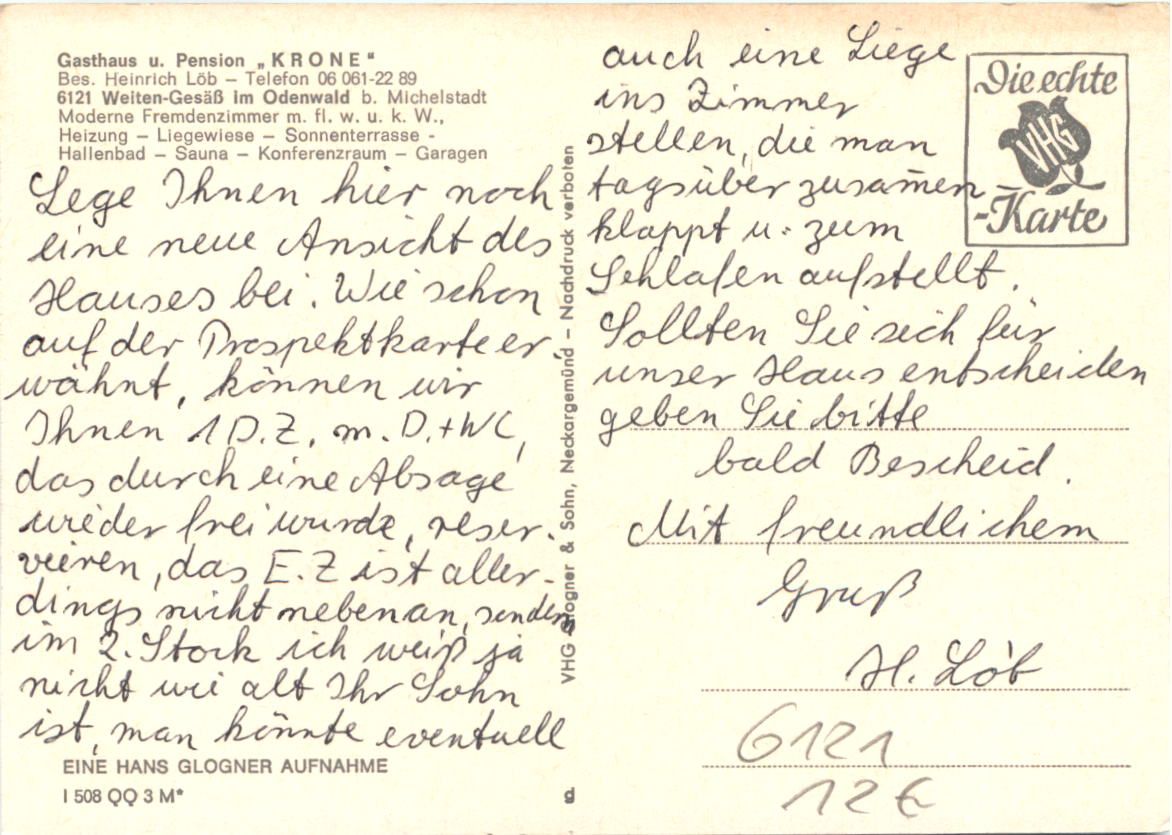 Gasthaus u. Pension „KRONE"
Bes. Heinrich Löb – Telefon 06 061-22 89
6121 Weiten-Gesäß im Odenwald b. Michelstadt
Moderne Fremdenzimmer m. fl. w. u. k. W.,
Heizung – Liegewiese – Sonnenterrasse -
Hallenbad – Sauna – Konferenzraum – Garagen
Lege Ihnen hier noch
eine neue Ansicht des
Hauses bei. Wie schon
auf der Prospektkarte er,
wähnt, können wir
Ihnen 1 D.Z. m. D.+WC,
das durch eine Absage
wieder frei wurde, reser-
vieren, das E.Z ist aller-
dings nicht nebenan, sondern
im 2. Stock ich weiß ja
nicht wie alt Ihr Sohn
ist, man könnte eventuell
EINE HANS GLOGNER AUFNAHME
I 508 QQ 3 M*
VHG Glogner & Sohn, Neckargemünd – Nachdruck verboten
g
auch eine Liege
ins Zimmer
stellen, die man
tagsüber zusam̄en-
klappt u. zum
Schlafen aufstellt.
Sollten Sie sich für
unser Haus entscheiden
geben Sie bitte
bald Bescheid.
Mit freundlichem
Gruß
H. Löb
Die echte
VHG
-Karte
6121
12 €